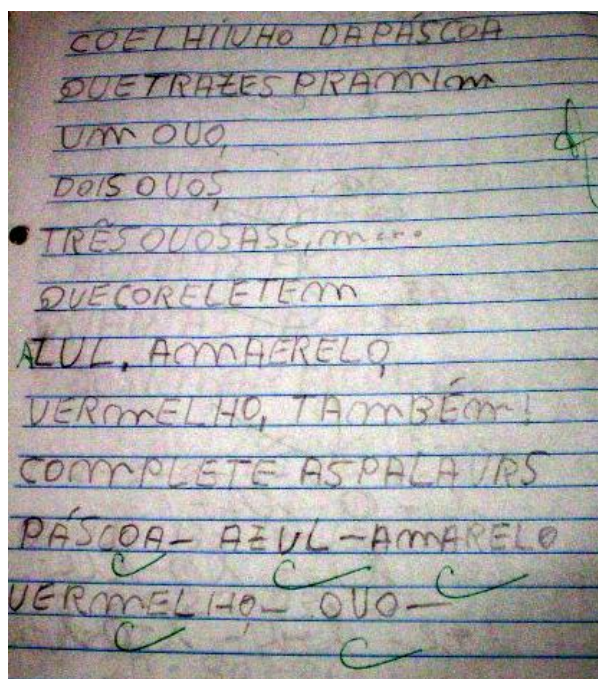 COELHIUHO DAPÁSCOA
QUETRAZES PRAMIM
UM OVO,
DOIS OVOS,
TRÊS OVOSASSIM...
QUECORELETEM
AZUL, AMAERELO,
VERMELHO, TAMBÉM!
COMPLETE ASPALAVRS
PÁSCOA- AZUL-AMARELO
VERMELHO- OVO-